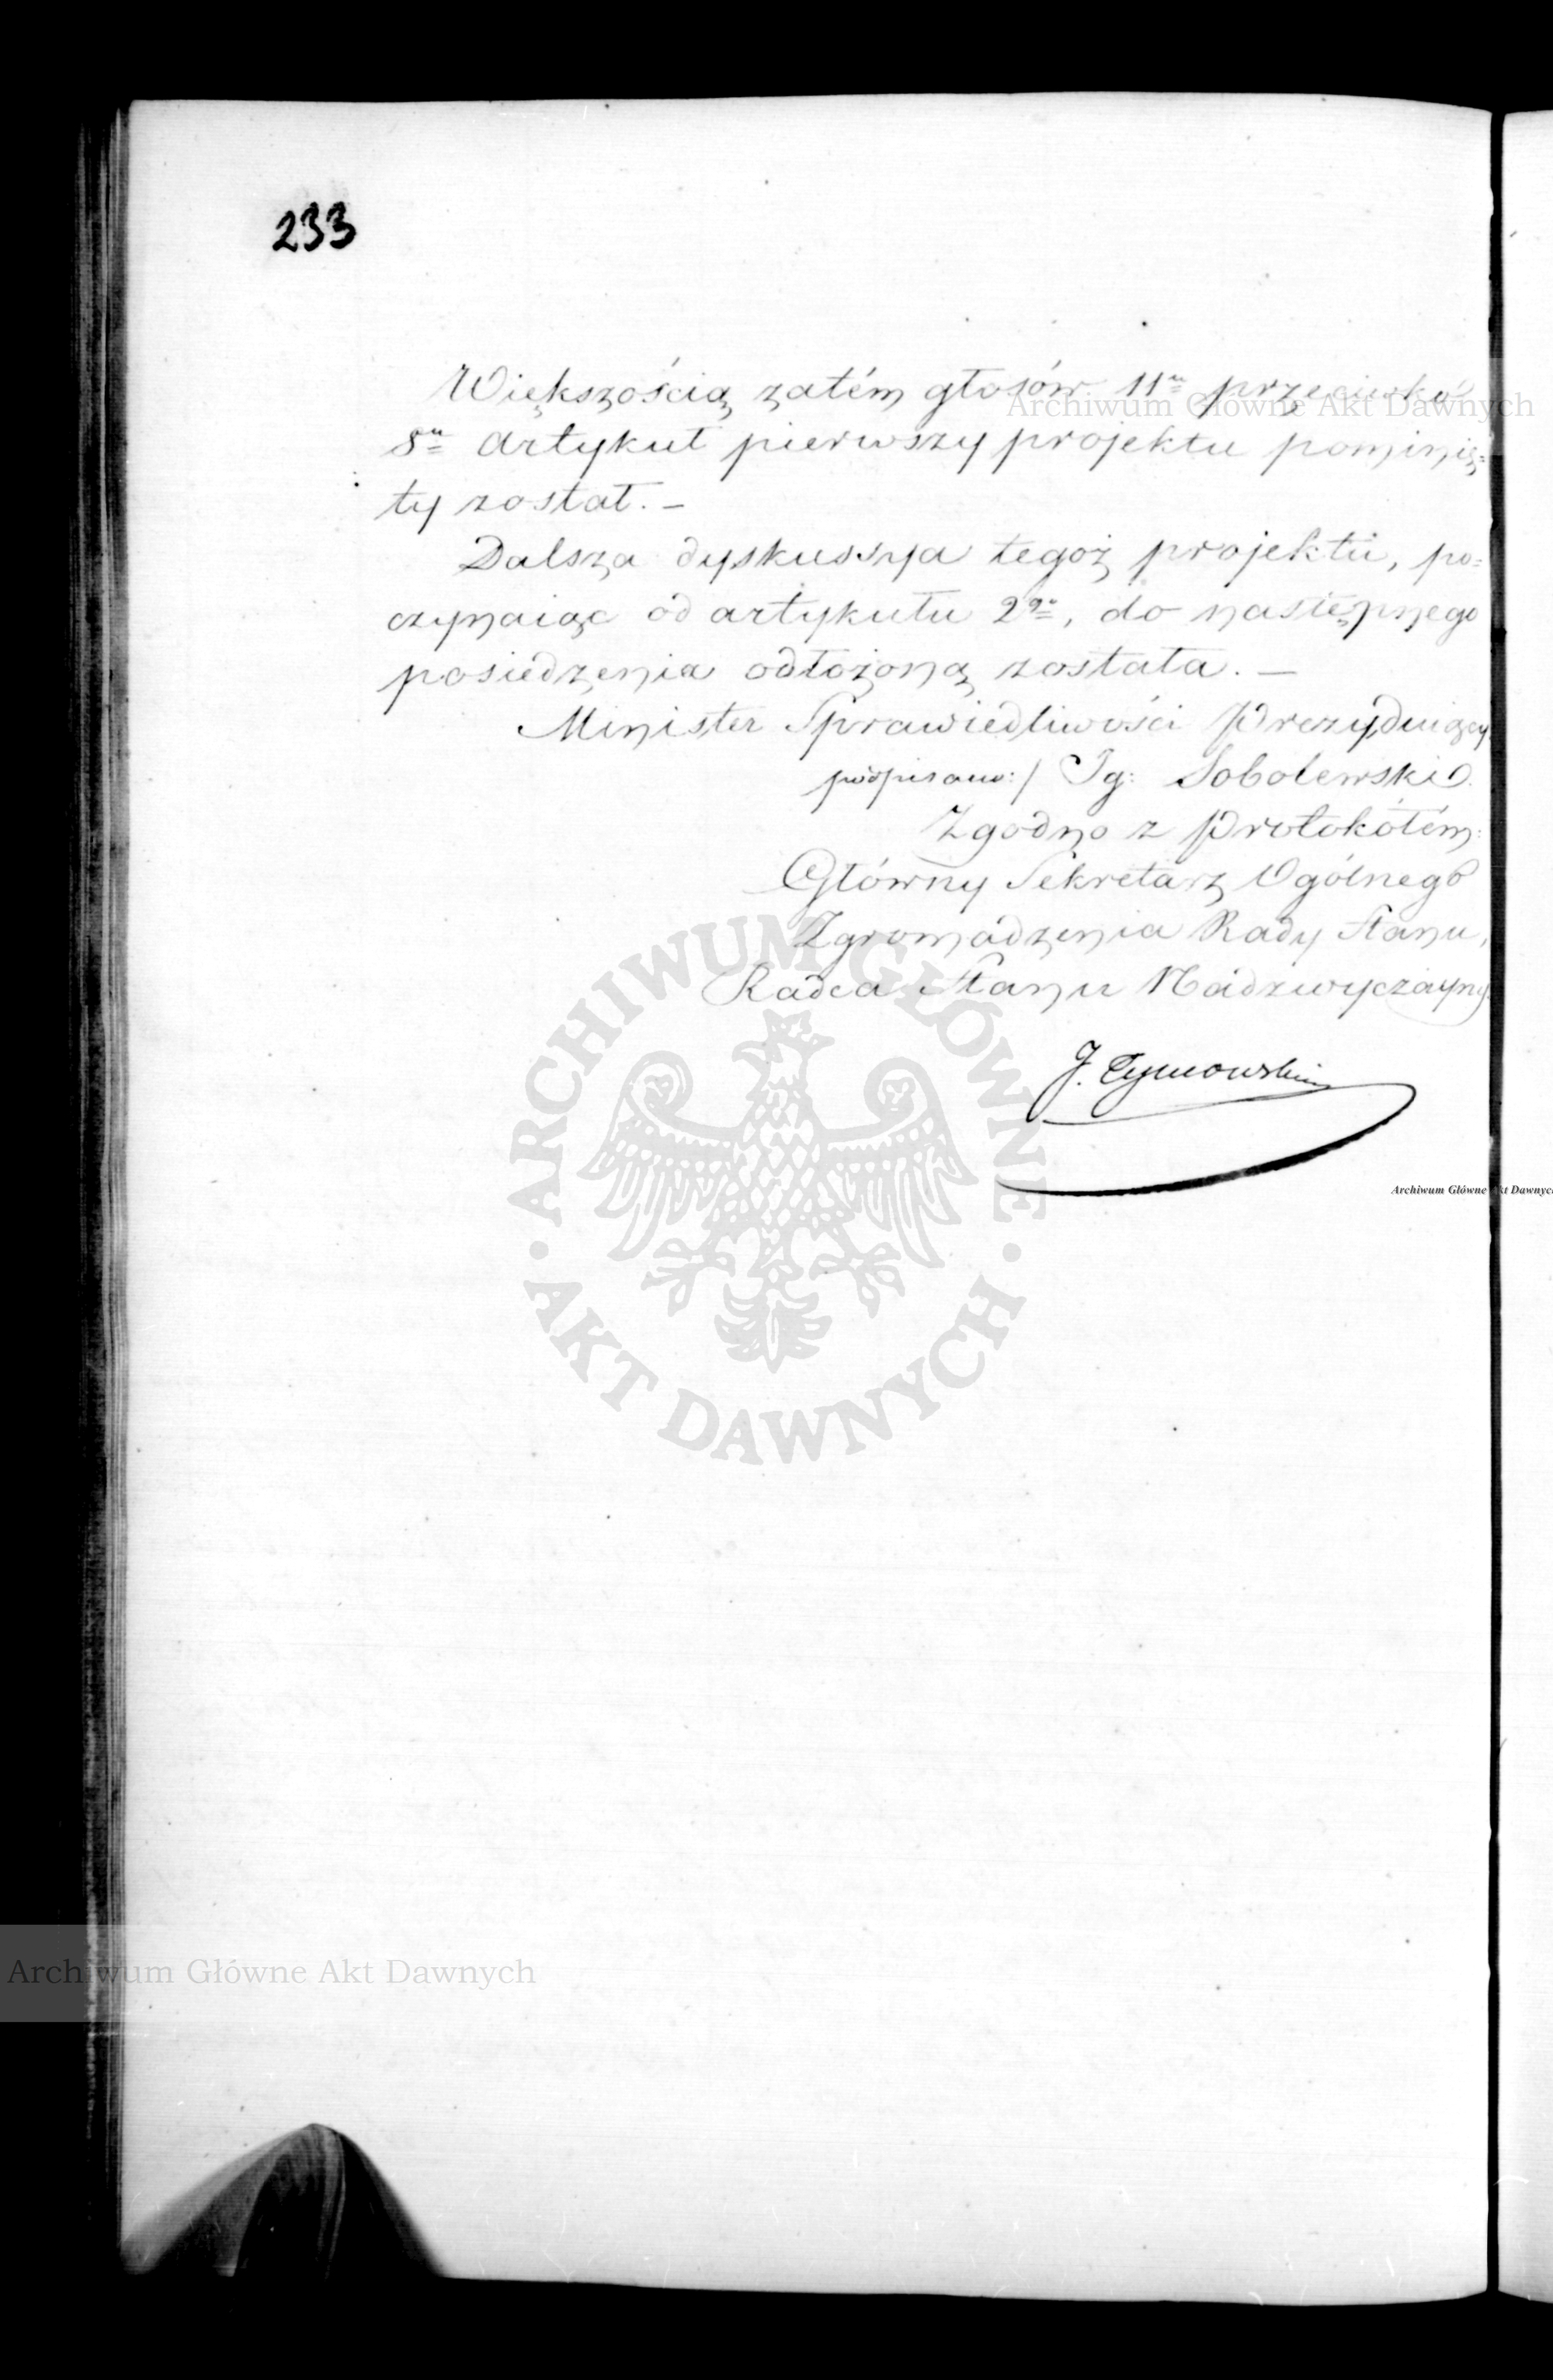 233
Większością zatém głosów 11u przeciwko
8u artykuł pierwszy projektu pominię=
ty został. –
Dalsza dyskussya tegoż projektu, po=
czynaiąc od artykułu 2go, do następnego
posiedzenia odłożoną została. –
Minister Sprawiedliwości Prezyduiący
podpisano:/ Ig: Sobolewski.
Zgodno z Protokółem:
Główny Sekretarz Ogólnego
Zgromadzenia Rady Stanu,
Radca Stanu Nadzwyczayny
J. Tymowski
Archiwum Główne Akt Dawnych
ARCHIWUM GŁÓWNE · AKT DAWNYCH ·
Archiwum Główne Akt Dawnych
Archiwum Główne Akt Dawnych